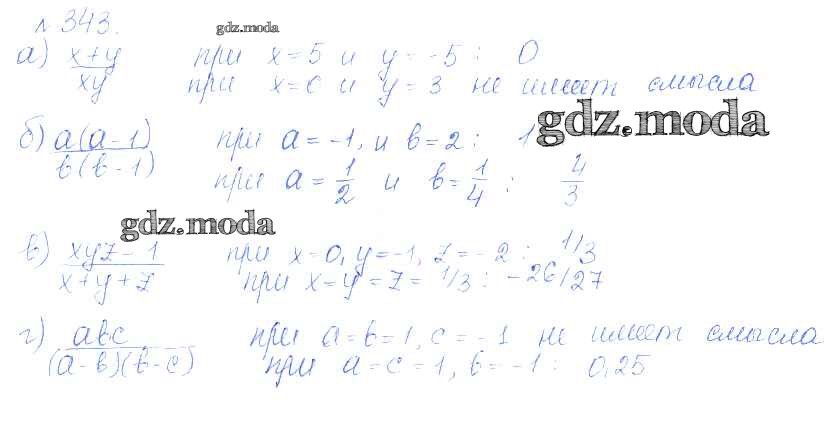 № 343. gdz.moda
а) (x+y)/(xy) при x=5 и y=-5 : 0
при x=0 и y=3 не имеет смысла
gdz.moda
б) a(a-1)/(b(b-1)) при a=-1, и b=2 : 1
при a=1/2 и b=1/4 : 4/3
gdz.moda
в) (xyz-1)/(x+y+z) при x=0, y=-1, z=-2 : 1/3
при x=y=z=1/3 : -26/27
г) abc/((a-b)(b-c)) при a=b=1, c=-1 не имеет смысла
при a=c=1, b=-1 : 0,25